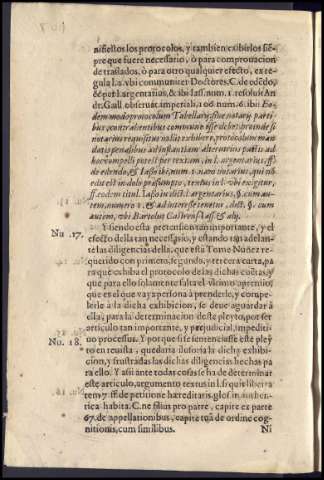 nifiestos los protocolos, y tambien exibirlos siẽ-
pre que fuere necessario, ò para comprouacion
de traslados, ò para otro qualquier efecto, ex re-
gula l.2. vbi communiter Doctores. C. de edẽdo,
& per l. argentarius, & ibi Iass. num. 1. resoluit An
dr. Gail. obseruat. imperial. 106. num. 6. ibi: Eo-
dem modo protocolum Tabellarij siue notarij parti
bus, contrahentibus commune esse debet: proinde si
notarius requisitus nō sit exhibere, protocolum man
datis penalibus ad instantiam alterius partis ad
hoc compelli potest per tex. tam, in l. argentarius, ff.
de edendo, & Iaso ibi, num. 1. nam notarius, qui nō
edit est in dolo præsumpto, textus in l. vbi exigitur,
ff. eodem titul. Iaso in dict. l. argentarius, §. cum au-
tem, numero 1. & ad interesse tenetur, dict. §. cum
autem, vbi Bartolus Castrens. Iass. & alij.
Nu. 17. Y siendo esta pretension tan importante, y el
efecto della tan necessario, y estando tan adelan-
te las diligencias della, que està Tome Nuñez re-
querido con primero, segundo, y tercera carta, pa
ra que exhiba el protocolo de las dichas cuẽtas, y
que para ello solamente falta el vltimo apremio,
que es el que va y persona à prenderle, y compe-
lerle à la dicha exhibicion, se deue aguardar à
ella, para la determinacion deste pleyto, por ser
articulo tan importante, y prejudicial, impediti-
Nu. 18. uo processus. Y porque si se sentenciasse este pley
to en reuista, quedaria ilusoria la dicha exhibi-
cion, y frustradas las dichas diligencias hechas pa
ra ello. Y assi ante todas cosas se ha de determinar
este articulo, argumento textus in l. si quis libera
tem 7. ff. de petitione hæreditatis, glos. in authen-
tica habita. C. ne filius pro patre, capite ex parte
67. de appellationibus, capite tuã de ordine cog-
nitionis, cum similibus.
Ni